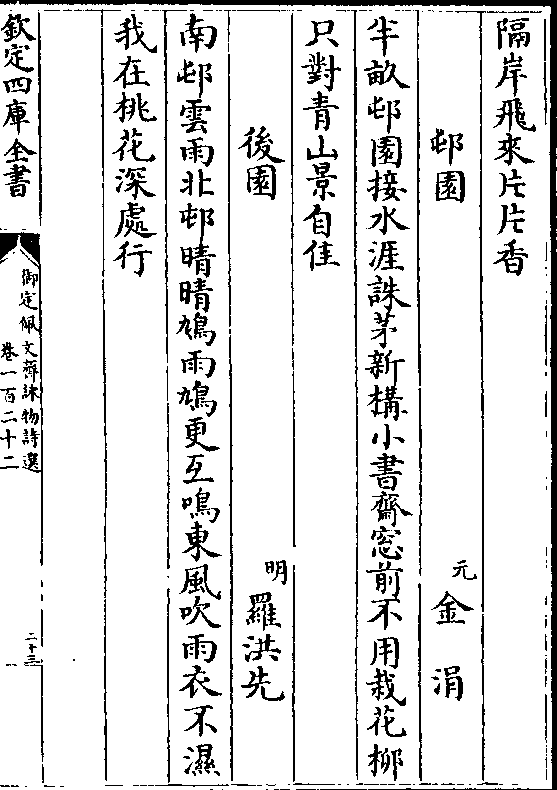 隔岸飛來片片香
邨園
元
金涓
半畝邨園接水涯誅茅新構小書齋窓前不用栽花柳
只對青山景自佳
後園
明
羅洪先
南邨雲雨北邨晴晴鳩雨鳩更互鳴東風吹雨衣不濕
我在桃花深處行
欽定四庫全書
御定佩文齋詠物詩選
卷一百二十二
二十三